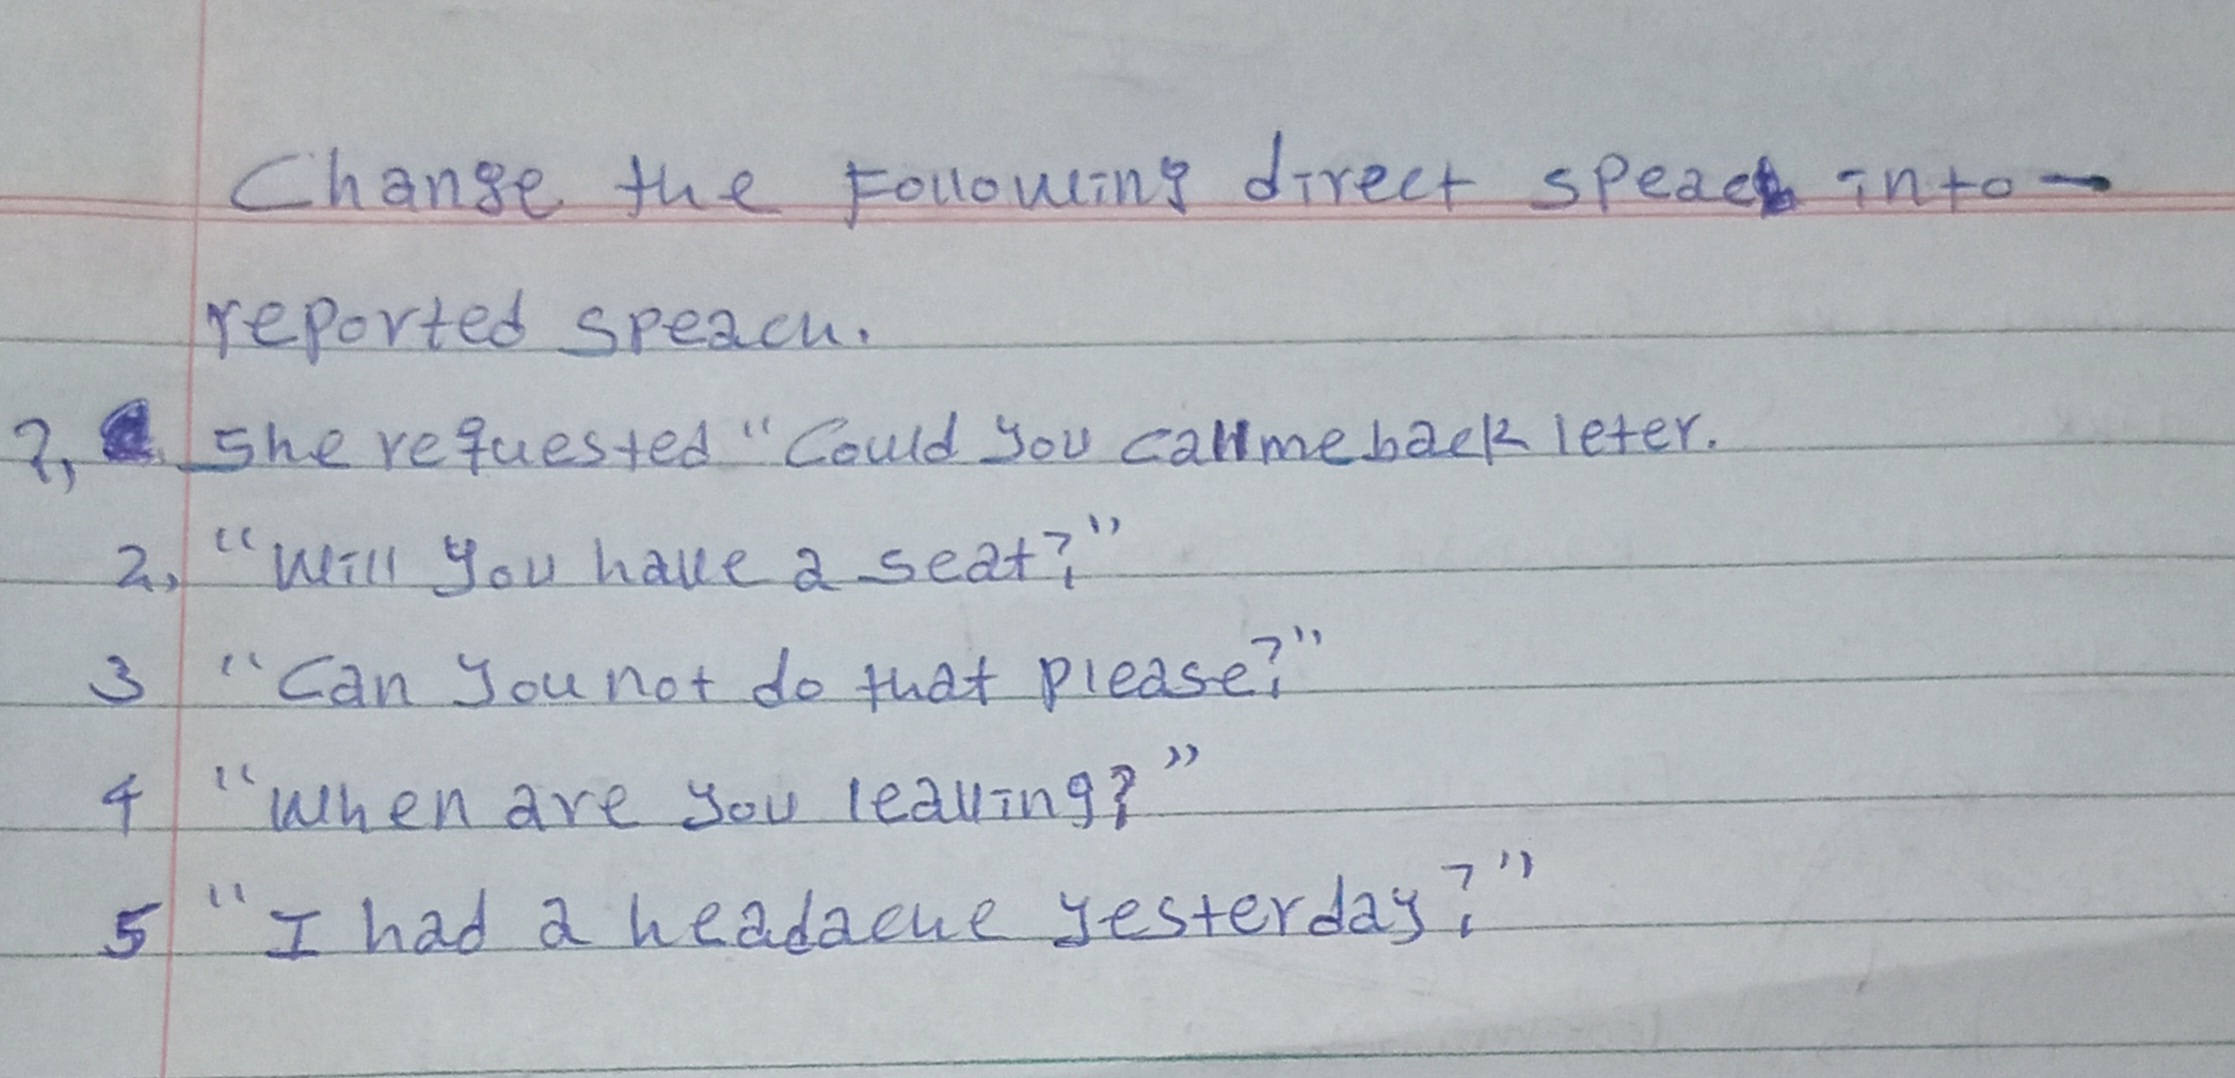 Change the Following direct speach into -
reported speach.
1, She requested "Could you call me back leter.
2, "Will you have a seat?"
3 "Can you not do that please?"
4 "When are you leaving?"
5 "I had a headache yesterday?"